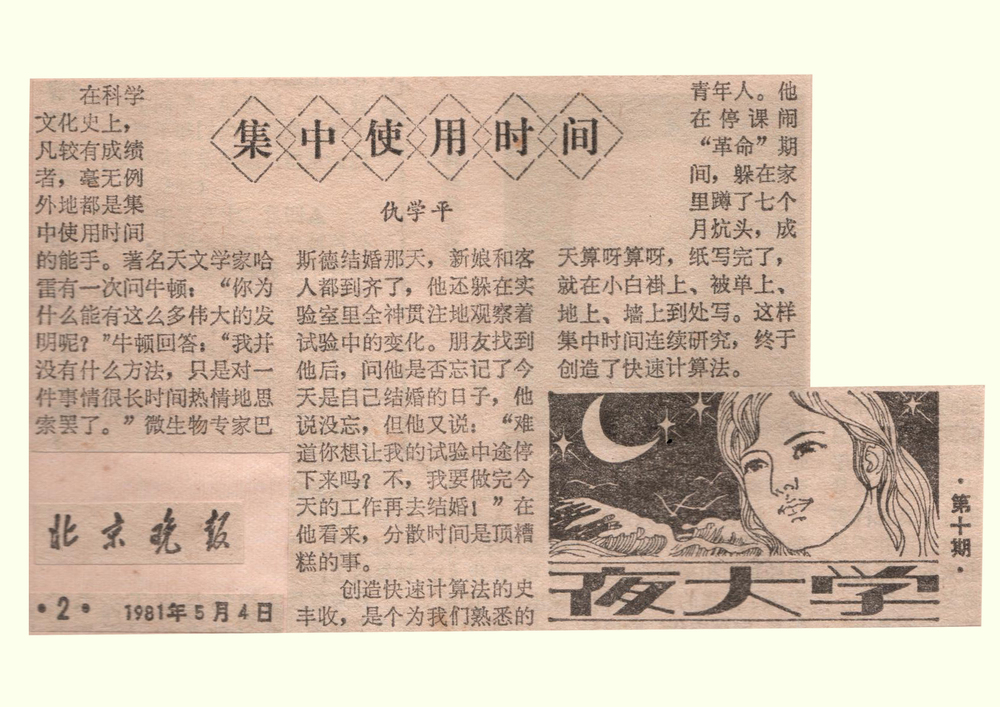 集中使用时间
仇学平
在科学
文化史上，
凡较有成绩
者，毫无例
外地都是集
中使用时间
的能手。著名天文学家哈
雷有一次问牛顿：“你为
什么能有这么多伟大的发
明呢？”牛顿回答：“我并
没有什么方法，只是对一
件事情很长时间热情地思
索罢了。”微生物专家巴
斯德结婚那天，新娘和客
人都到齐了，他还躲在实
验室里全神贯注地观察着
试验中的变化。朋友找到
他后，问他是否忘记了今
天是自己结婚的日子，他
说没忘，但他又说：“难
道你想让我的试验中途停
下来吗？不，我要做完今
天的工作再去结婚！”在
他看来，分散时间是顶糟
糕的事。
创造快速计算法的史
丰收，是个为我们熟悉的
青年人。他
在停课闹
“革命”期
间，躲在家
里蹲了七个
月炕头，成
天算呀算呀，纸写完了，
就在小白褂上、被单上、
地上、墙上到处写。这样
集中时间连续研究，终于
创造了快速计算法。
北京晚报
·2· 1981年5月4日
夜大学
·第十期·